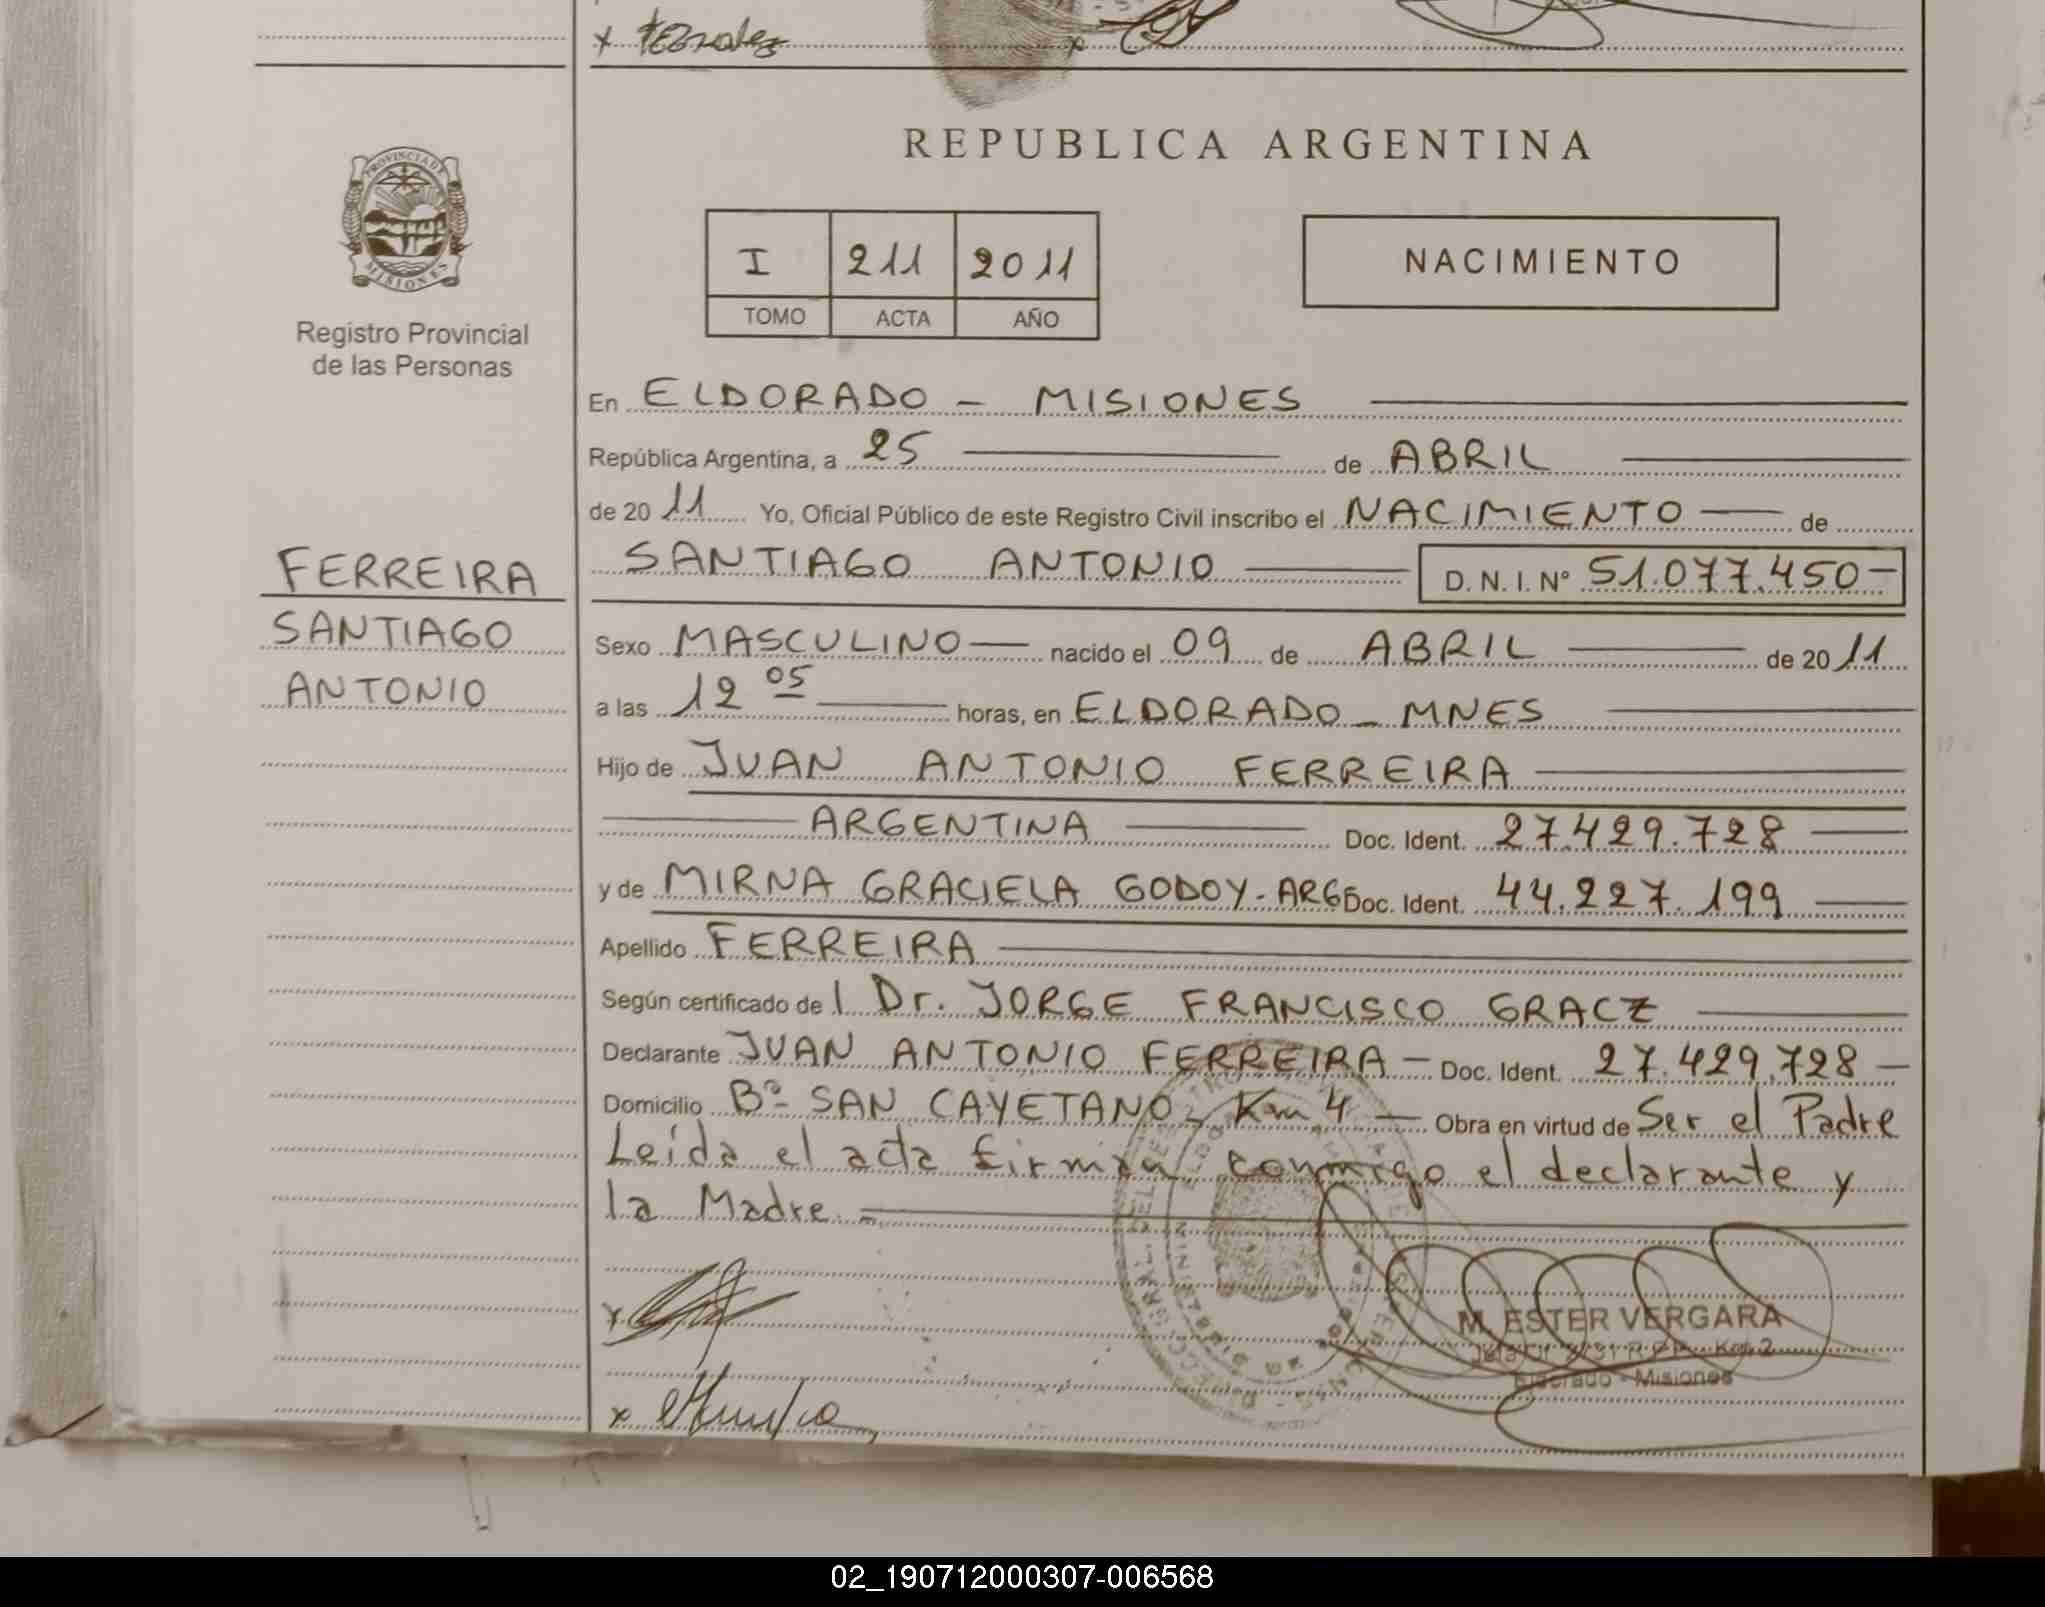 REPUBLICA ARGENTINA
PROVINCIA DE
MISIONES
Registro Provincial
de las Personas
I 211 2011
TOMO ACTA AÑO
NACIMIENTO
En ELDORADO - MISIONES
República Argentina, a 25 de ABRIL
de 2011 Yo, Oficial Público de este Registro Civil inscribo el NACIMIENTO de
SANTIAGO ANTONIO D. N. I. N° 51.077.450-
FERREIRA
SANTIAGO
ANTONIO
Sexo MASCULINO nacido el 09 de ABRIL de 2011
a las 12 05 horas, en ELDORADO - MNES
Hijo de JUAN ANTONIO FERREIRA
ARGENTINA Doc. Ident. 27.429.728
y de MIRNA GRACIELA GODOY - ARG Doc. Ident. 44.227.199
Apellido FERREIRA
Según certificado de l Dr. JORGE FRANCISCO GRACZ
Declarante JUAN ANTONIO FERREIRA - Doc. Ident. 27.429.728 -
Domicilio Bº SAN CAYETANO - Km 4 - Obra en virtud de Ser el Padre
Leída el acta firman conmigo el declarante y
la Madre. -
M. ESTER VERGARA
Km 2
Eldorado - Misiones
02_190712000307-006568